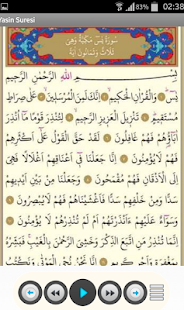 02:38
Yasin Suresi
سُورَةُ يٰسٓ مَكِّيَّةٌ وَهِيَ
ثَلَاثٌ وَثَمَانُونَ اٰيَةً
بِسْمِ اللّٰهِ الرَّحْمٰنِ الرَّحِيمِ
يٰسٓ وَالْقُرْاٰنِ الْحَكِيمِ اِنَّكَ لَمِنَ الْمُرْسَلِينَ عَلٰى صِرَاطٍ
مُسْتَقِيمٍ تَنْزِيلَ الْعَزِيزِ الرَّحِيمِ لِتُنْذِرَ قَوْمًا مَٓا اُنْذِرَ
اٰبَٓاؤُ۬هُمْ فَهُمْ غَافِلُونَ لَقَدْ حَقَّ الْقَوْلُ عَلٰٓى اَكْثَرِهِمْ
فَهُمْ لَا يُؤْمِنُونَ اِنَّا جَعَلْنَا فِٓي اَعْنَاقِهِمْ اَغْلَالًا فَهِيَ
اِلَى الْاَذْقَانِ فَهُمْ مُقْمَحُونَ وَجَعَلْنَا مِنْ بَيْنِ اَيْدِيهِمْ
سَدًّا وَمِنْ خَلْفِهِمْ سَدًّا فَاَغْشَيْنَاهُمْ فَهُمْ لَا يُبْصِرُونَ
وَسَوَٓاءٌ عَلَيْهِمْ ءَاَنْذَرْتَهُمْ اَمْ لَمْ تُنْذِرْهُمْ لَا يُؤْمِنُونَ
اِنَّمَا تُنْذِرُ مَنِ اتَّبَعَ الذِّكْرَ وَخَشِيَ الرَّحْمٰنَ بِالْغَيْبِ فَبَشِّرْهُ
بِمَغْفِرَةٍ وَاَجْرٍ كَرِيمٍ اِنَّا نَحْنُ نُحْيِ الْمَوْتٰى وَنَكْتُبُ